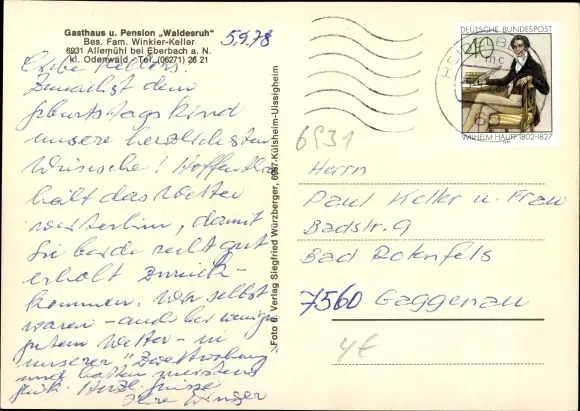 Gasthaus u. Pension „Waldesruh"
Bes. Fam. Winkler-Keller
6931 Allemühl bei Eberbach a. N.
kl. Odenwald - Tel. (06271) 26 21
5.9.78
Liebe Kellers,
Zunächst dem
Geburtstagskind
unsere herzlichsten
Wünsche! Hoffentlich
hält das Wetter
weiterhin, damit
Sie beide recht gut
erholt zurück-
kommen. Wir selbst
waren - auch bei weniger
gutem Wetter - in
unserer "Zweitwohnung
und hatten meistens
Glück. Herzl. Grüsse
Ihre
„Foto u. Verlag Siegfried Würzberger, 6987 Külsheim-Uissigheim
DEUTSCHE BUNDESPOST
40
WILHELM HAUFF 1802-1827
6931
Herrn
Paul Keller u. Frau
Badstr. 9
Bad Rotenfels
7560 Gaggenau
4€